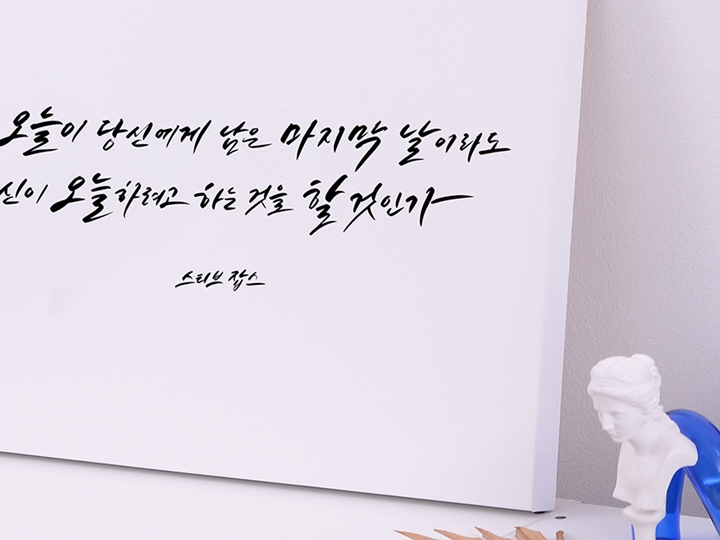 오늘이 당신에게 남은 마지막 날이라도
신이 오늘하려고 하는 것을 할 것인가
스티브 잡스